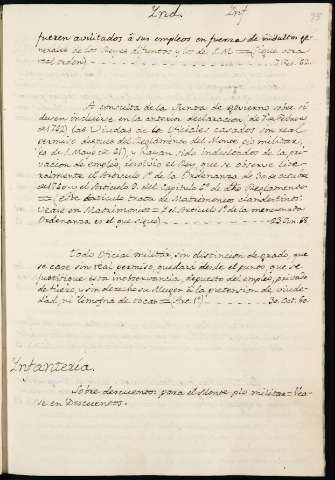 Ynd. Ynf
75
fuesen avilitados à sus empleos en fuerza de indultos ge-
nerales de los Reyes difuntos y los de S. M. = (sigue otra
real orden) - - - 7. Feb. 62.
A consulta de la Junta de govierno sobre si
deven incluirse en la anterior declaracion (de 7 de Febrero
de 1762) las Viudas de los Oficiales casados sin real
permiso despues del Reglamento del Monte pio militar,
(es de 1 Mayo de 61) y hayan sido indultados de la pri-
vacion de empleo, resolvio el Rey, que se observe lite-
ralmente el Articulo 1º de la Ordenanza de 30 de octubre
de 1760 y el Articulo 9. del Capitulo 9º de dho Reglamento
= (este articulo trata de Matrimonios clandestinos:
Vease en Matrimonios = Y el Articulo 1º de la mencionada
Ordenanza es el que sigue) - - - 23. Jun. 68
Todo Oficial militar, sin distincion de grado, que
se case sin Real permiso, quedará desde el punto que se
justifique esta inobservancia, depuesto del empleo, privado
de fuero, y sin derecho su Muger à la pretension de viude-
dad, ni limosna de tocas = Art. 1º) - - - 30. Oct. 60
Infantería.
Sobre descuentos para el Monte pio militar = Vea-
se en Descuentos.